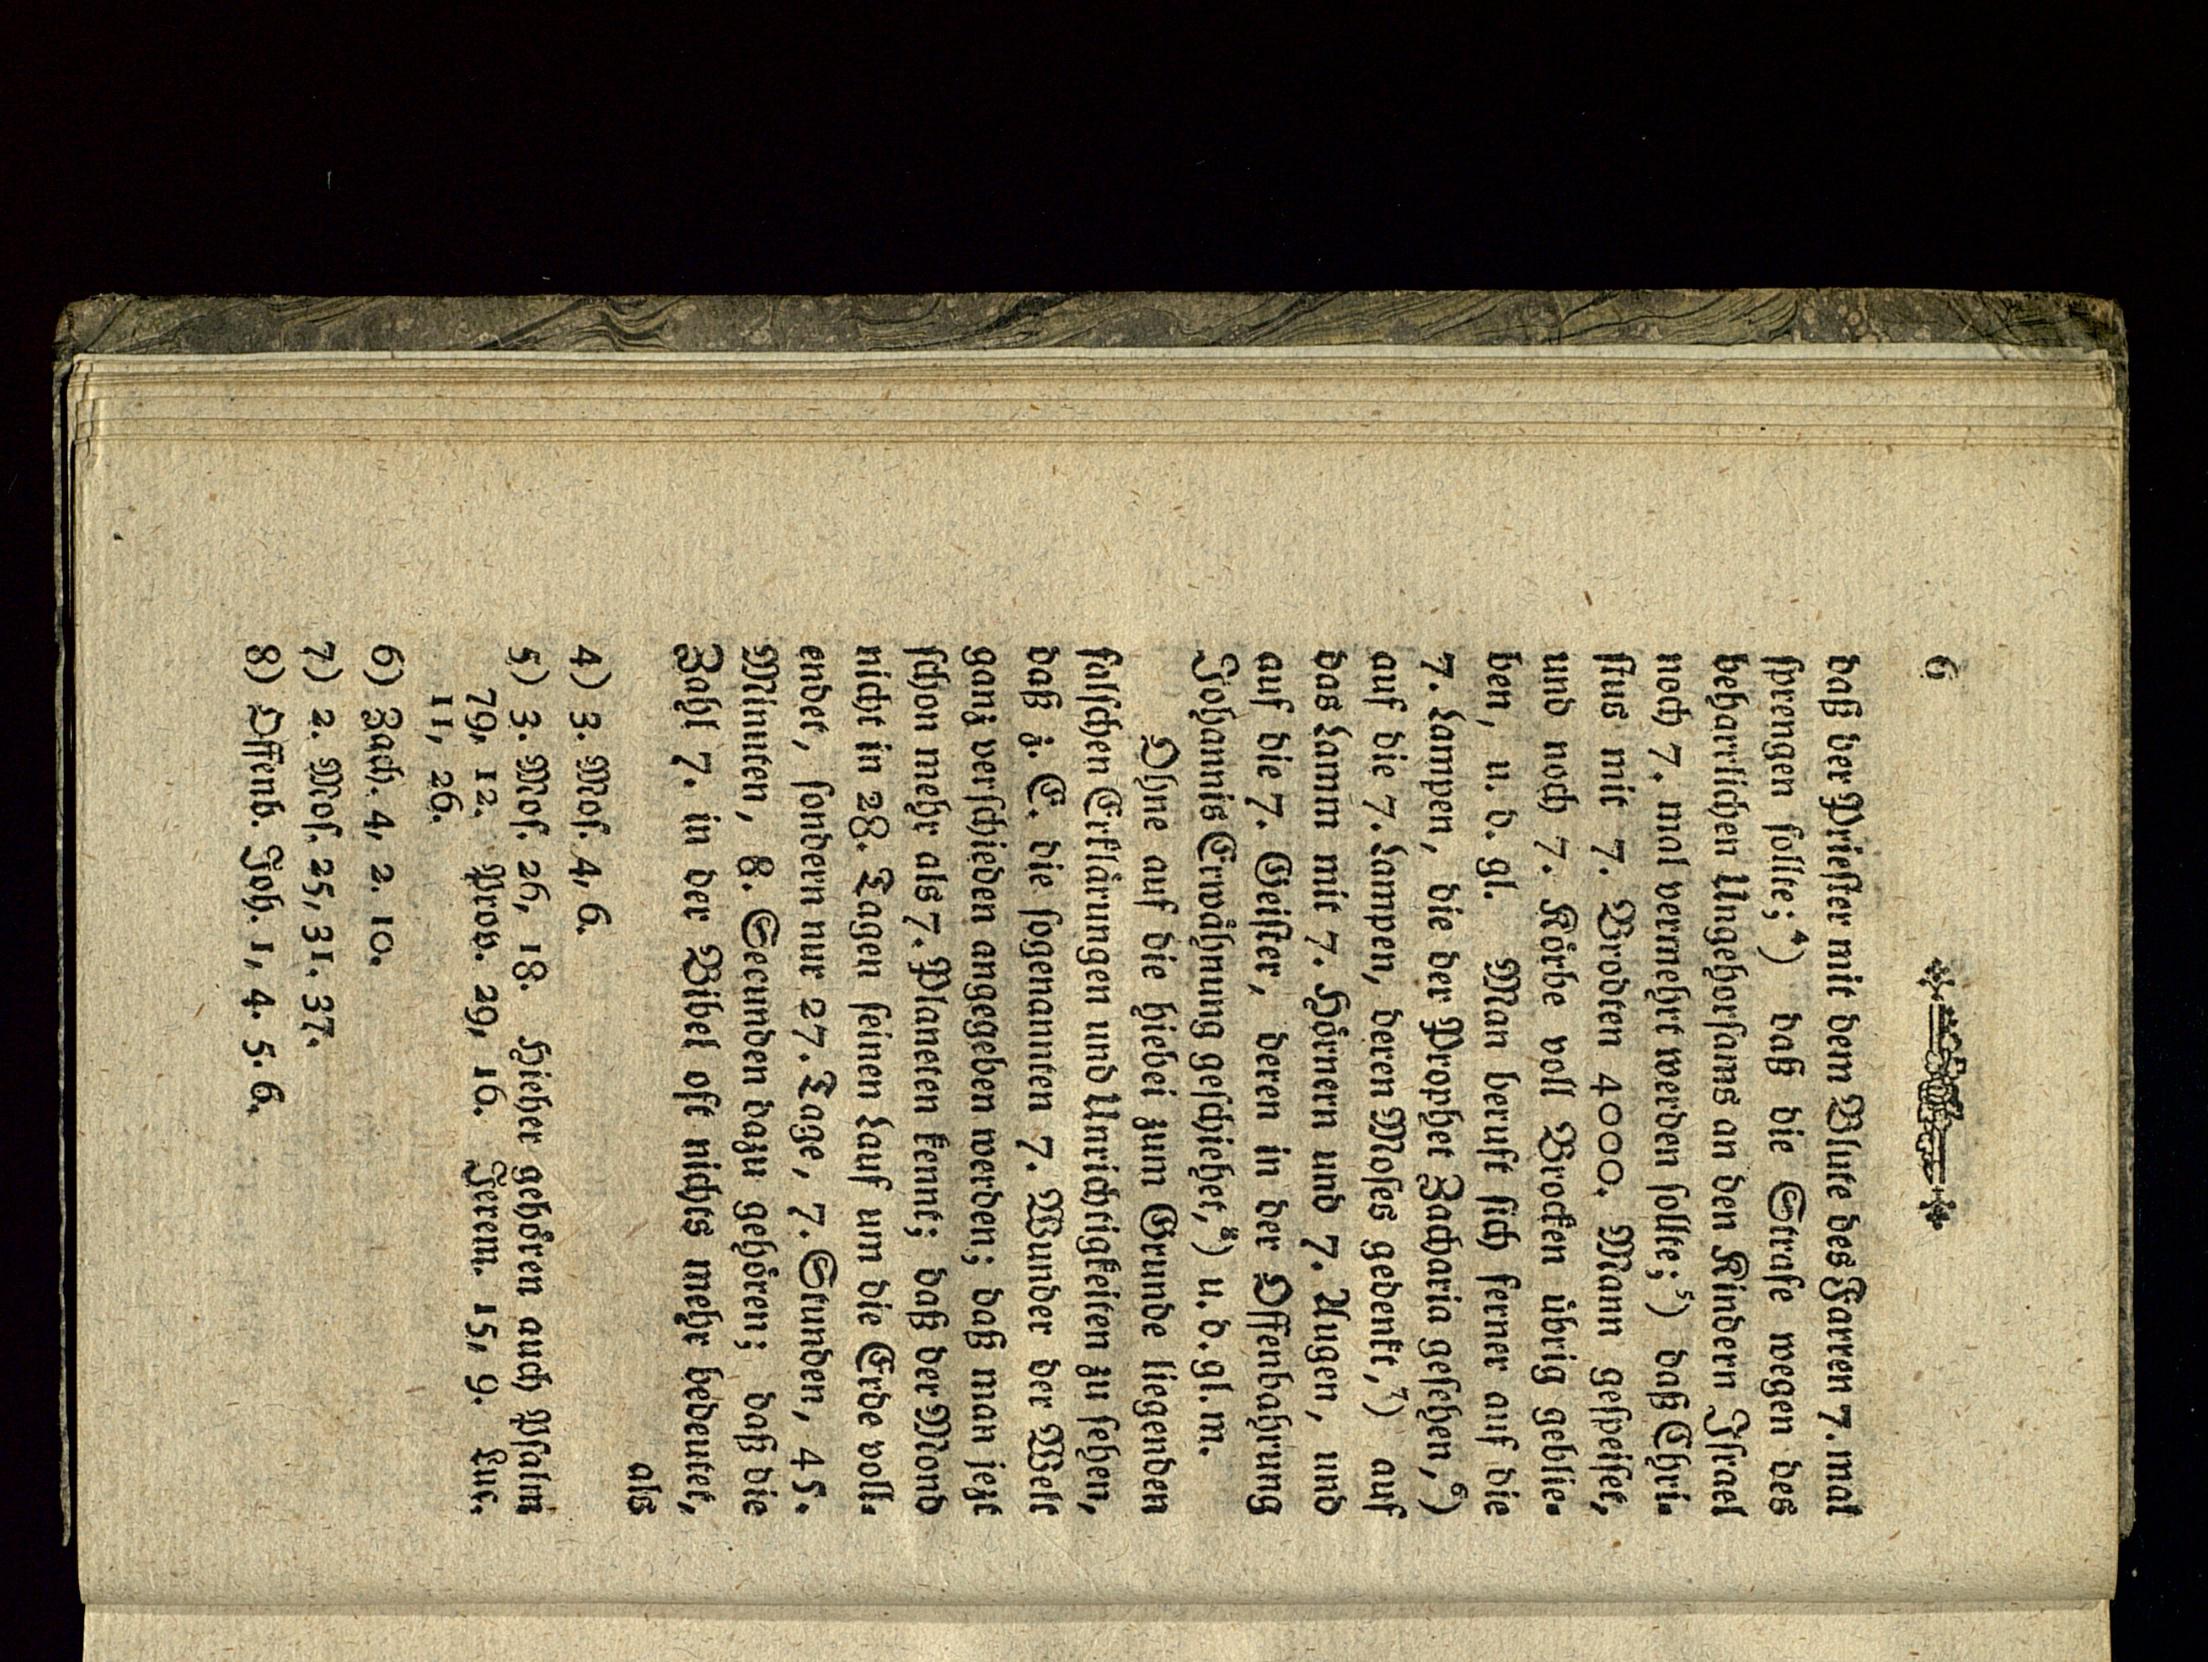 6
daß der Priester mit dem Blute des Farren 7. mal
sprengen sollte; 4) daß die Strafe wegen des
beharrlichen Ungehorsams an den Kindern Israel
noch 7. mal vermehrt werden sollte; 5) daß Chri-
stus mit 7. Brodten 4000. Mann gespeiset,
und noch 7. Körbe voll Brocken übrig geblie-
ben, u. d. gl. Man beruft sich ferner auf die
7. Lampen, die der Prophet Zacharia gesehen, 6)
auf die 7. Lampen, deren Moses gedenkt, 7) auf
das Lamm mit 7. Hörnern und 7. Augen, und
auf die 7. Geister, deren in der Offenbahrung
Johannis Erwähnung geschiehet, 8) u. d. gl. m.
Ohne auf die hiebei zum Grunde liegenden
falschen Erklärungen und Unrichtigkeiten zu sehen,
daß z. E. die sogenannten 7. Wunder der Welt
ganz verschieden angegeben werden; daß man jezt
schon mehr als 7. Planeten kennt; daß der Mond
nicht in 28. Tagen seinen Lauf um die Erde voll-
endet, sondern nur 27. Tage, 7. Stunden, 45.
Minuten, 8. Secunden dazu gehören; daß die
Zahl 7. in der Bibel oft nichts mehr bedeutet,
als
4) 3. Mos. 4, 6.
5) 3. Mos. 26, 18. Hieher gehören auch Psalm
79, 12. Prov. 29, 16. Jerem. 15, 9. Luc.
11, 26.
6) Zach. 4, 2. 10.
7) 2. Mos. 25, 31. 37.
8) Offenb. Joh. 1, 4. 5. 6.